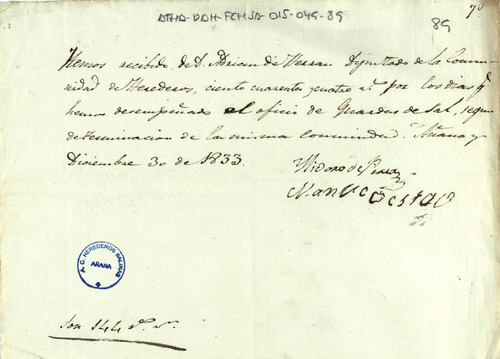 ATHA-DAH-FCHSA-015-049-89
89
Hemos recibido de D. Adrian de Herran Diputado de la Comu-
nidad de Herederos, ciento cuarenta y cuatro rs. por los dias q
hemos desempeñado el oficio de Guardas de Sal, segun
determinacion de la misma comunidad. Añana y
Diciembre 30 de 1833.
Ysidoro de
Manuel
A. C. HEREDEROS SALINAS
AÑANA
Son 144 rs. vn.